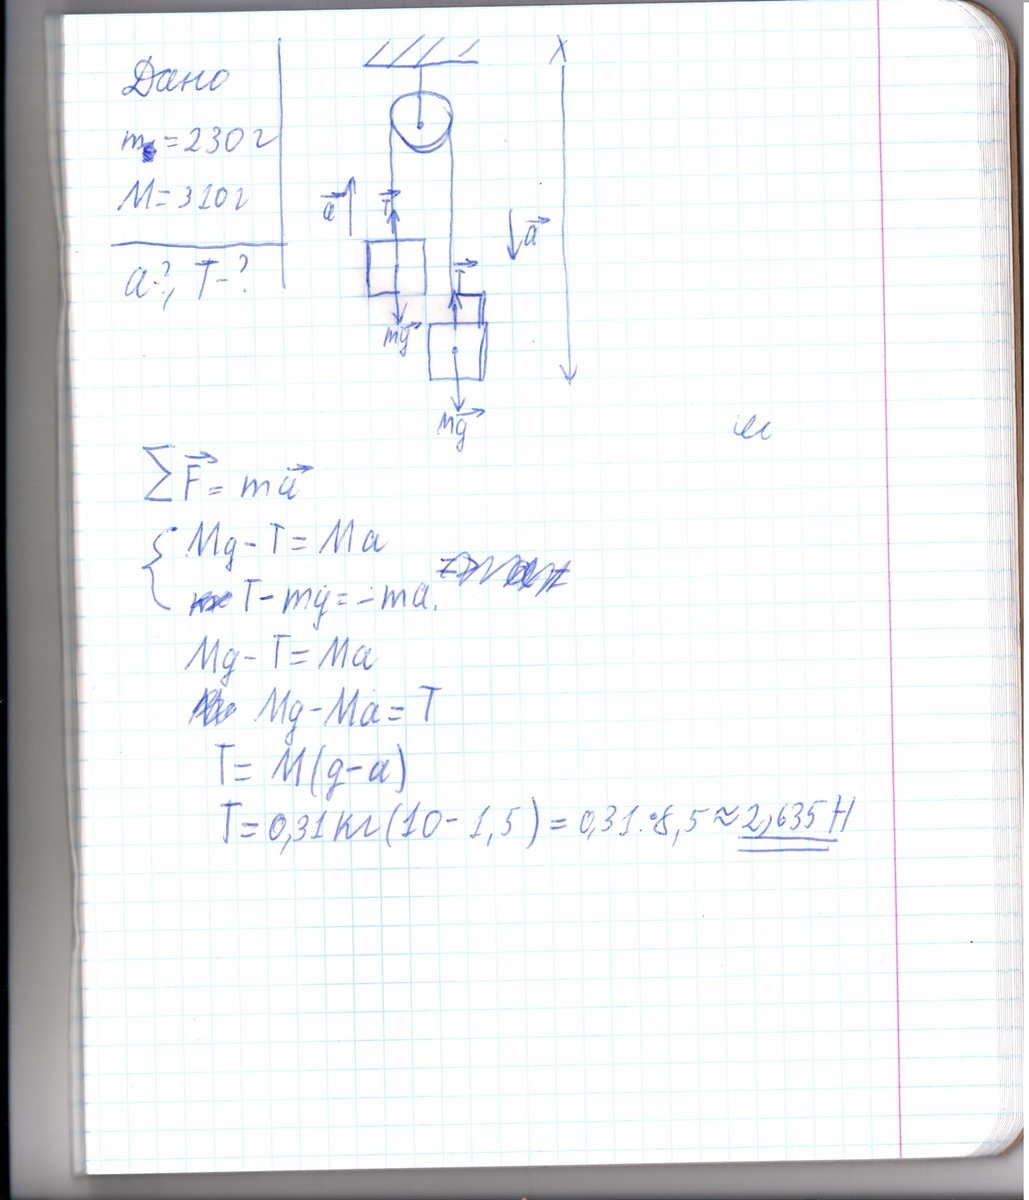 Дано
m = 230 г
M = 310 г
a-?, T-?
X
a
T
a
T
mg
Mg
∑F = ma
Mg - T = Ma
T - mg = -ma.
Mg - T = Ma
Mg - Ma = T
T = M(g-a)
T = 0,31 кг (10 - 1,5) = 0,31 · 8,5 ≈ 2,635 Н